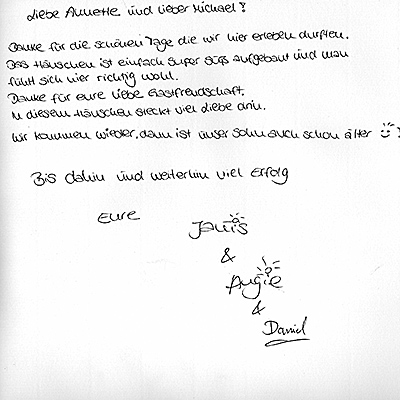 Liebe Annette und lieber Michael!
Danke für die schönen Tage die wir hier erleben durften.
Das Häuschen ist einfach super süß aufgebaut und man
fühlt sich hier richtig wohl.
Danke für eure liebe Gastfreundschaft.
In diesem Häuschen steckt viel Liebe drin.
Wir kommen wieder, dann ist unser Sohn auch schon älter
Bis dahin und weiterhin viel Erfolg
Eure
Janis
&
Angie
&
Daniel